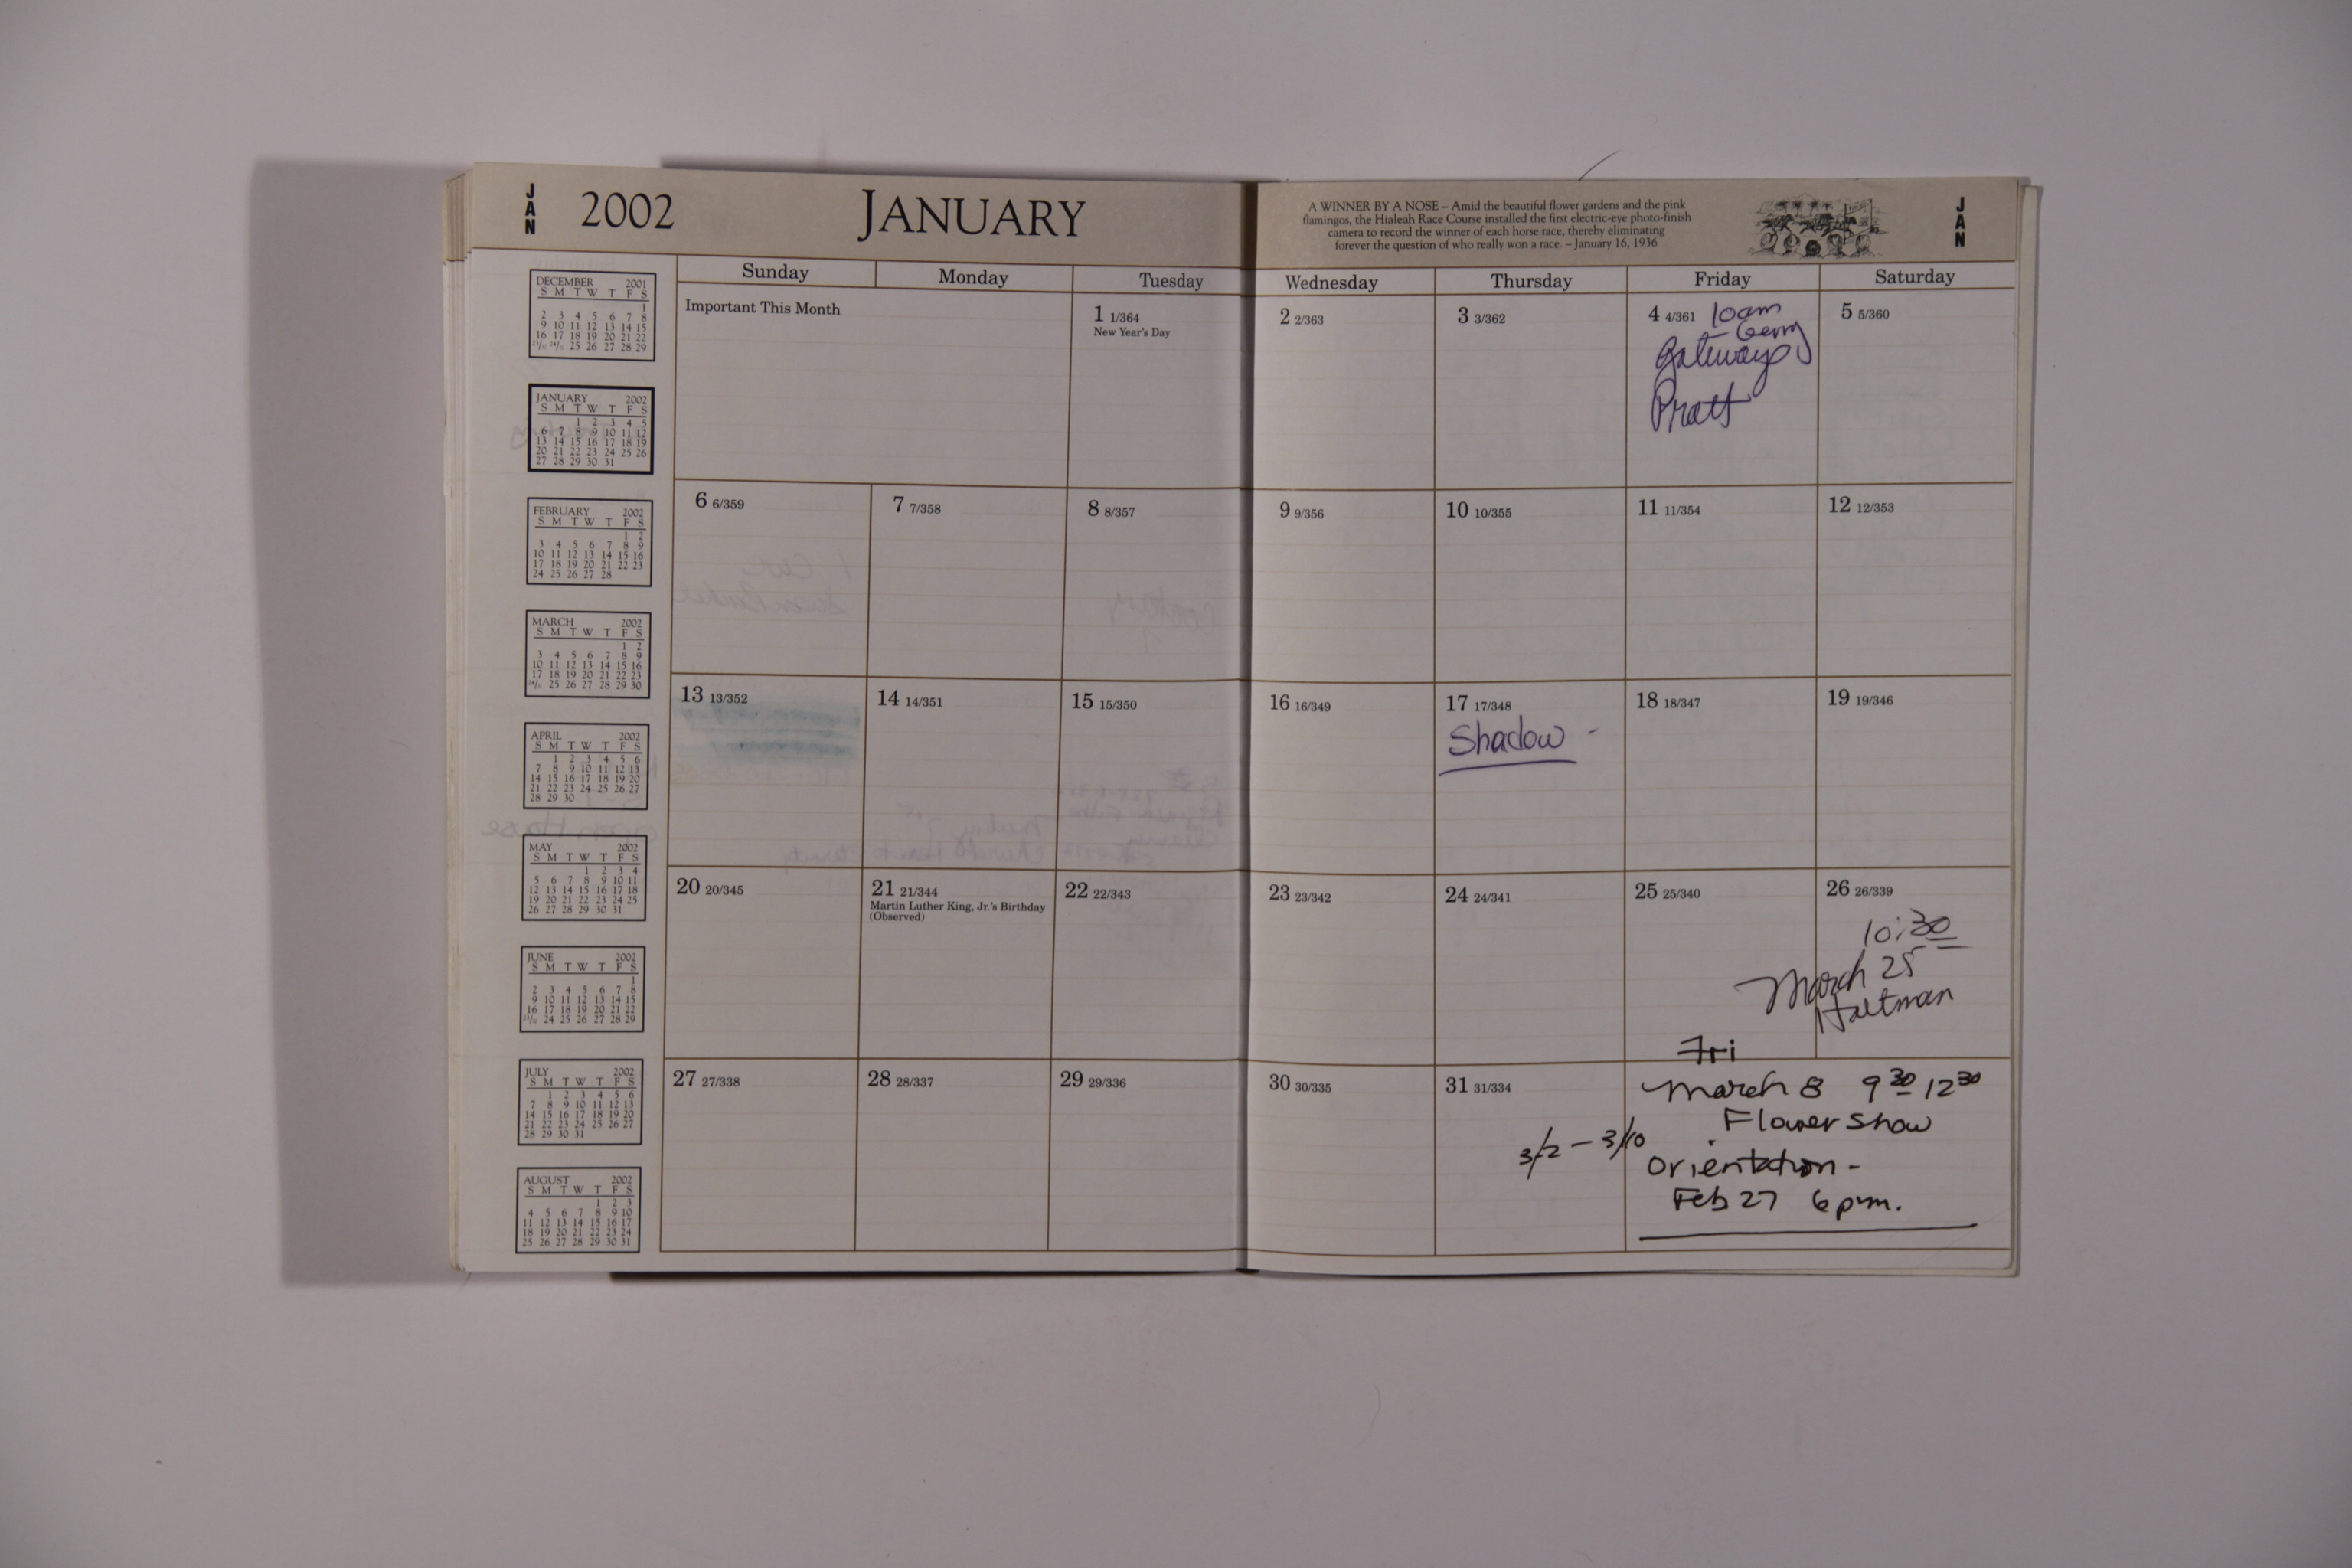 JAN
2002 JANUARY
A WINNER BY A NOSE – Amid the beautiful flower gardens and the pink
flamingos, the Hialeah Race Course installed the first electric-eye photo-finish
camera to record the winner of each horse race, thereby eliminating
forever the question of who really won a race. – January 16, 1936
JAN
DECEMBER 2001
S M T W T F S
1
2 3 4 5 6 7 8
9 10 11 12 13 14 15
16 17 18 19 20 21 22
23/30 24/31 25 26 27 28 29
JANUARY 2002
S M T W T F S
1 2 3 4 5
6 7 8 9 10 11 12
13 14 15 16 17 18 19
20 21 22 23 24 25 26
27 28 29 30 31
FEBRUARY 2002
S M T W T F S
1 2
3 4 5 6 7 8 9
10 11 12 13 14 15 16
17 18 19 20 21 22 23
24 25 26 27 28
MARCH 2002
S M T W T F S
1 2
3 4 5 6 7 8 9
10 11 12 13 14 15 16
17 18 19 20 21 22 23
24/31 25 26 27 28 29 30
APRIL 2002
S M T W T F S
1 2 3 4 5 6
7 8 9 10 11 12 13
14 15 16 17 18 19 20
21 22 23 24 25 26 27
28 29 30
MAY 2002
S M T W T F S
1 2 3 4
5 6 7 8 9 10 11
12 13 14 15 16 17 18
19 20 21 22 23 24 25
26 27 28 29 30 31
JUNE 2002
S M T W T F S
1
2 3 4 5 6 7 8
9 10 11 12 13 14 15
16 17 18 19 20 21 22
23/30 24 25 26 27 28 29
JULY 2002
S M T W T F S
1 2 3 4 5 6
7 8 9 10 11 12 13
14 15 16 17 18 19 20
21 22 23 24 25 26 27
28 29 30 31
AUGUST 2002
S M T W T F S
1 2 3
4 5 6 7 8 9 10
11 12 13 14 15 16 17
18 19 20 21 22 23 24
25 26 27 28 29 30 31
Sunday Monday Tuesday Wednesday Thursday Friday Saturday
Important This Month
1 1/364
New Year's Day
2 2/363
3 3/362
4 4/361 10am
Gateways
Pratt
5 5/360
6 6/359
7 7/358
8 8/357
9 9/356
10 10/355
11 11/354
12 12/353
13 13/352
14 14/351
15 15/350
16 16/349
17 17/348
Shadow -
18 18/347
19 19/346
20 20/345
21 21/344
Martin Luther King, Jr.'s Birthday
(Observed)
22 22/343
23 23/342
24 24/341
25 25/340
26 26/339
10:30
March 25
Haltman
27 27/338
28 28/337
29 29/336
30 30/335
31 31/334
Fri
March 8 9 30 12 30
Flower Show
3/2 – 3/10
Orientation -
Feb 27 6 pm.